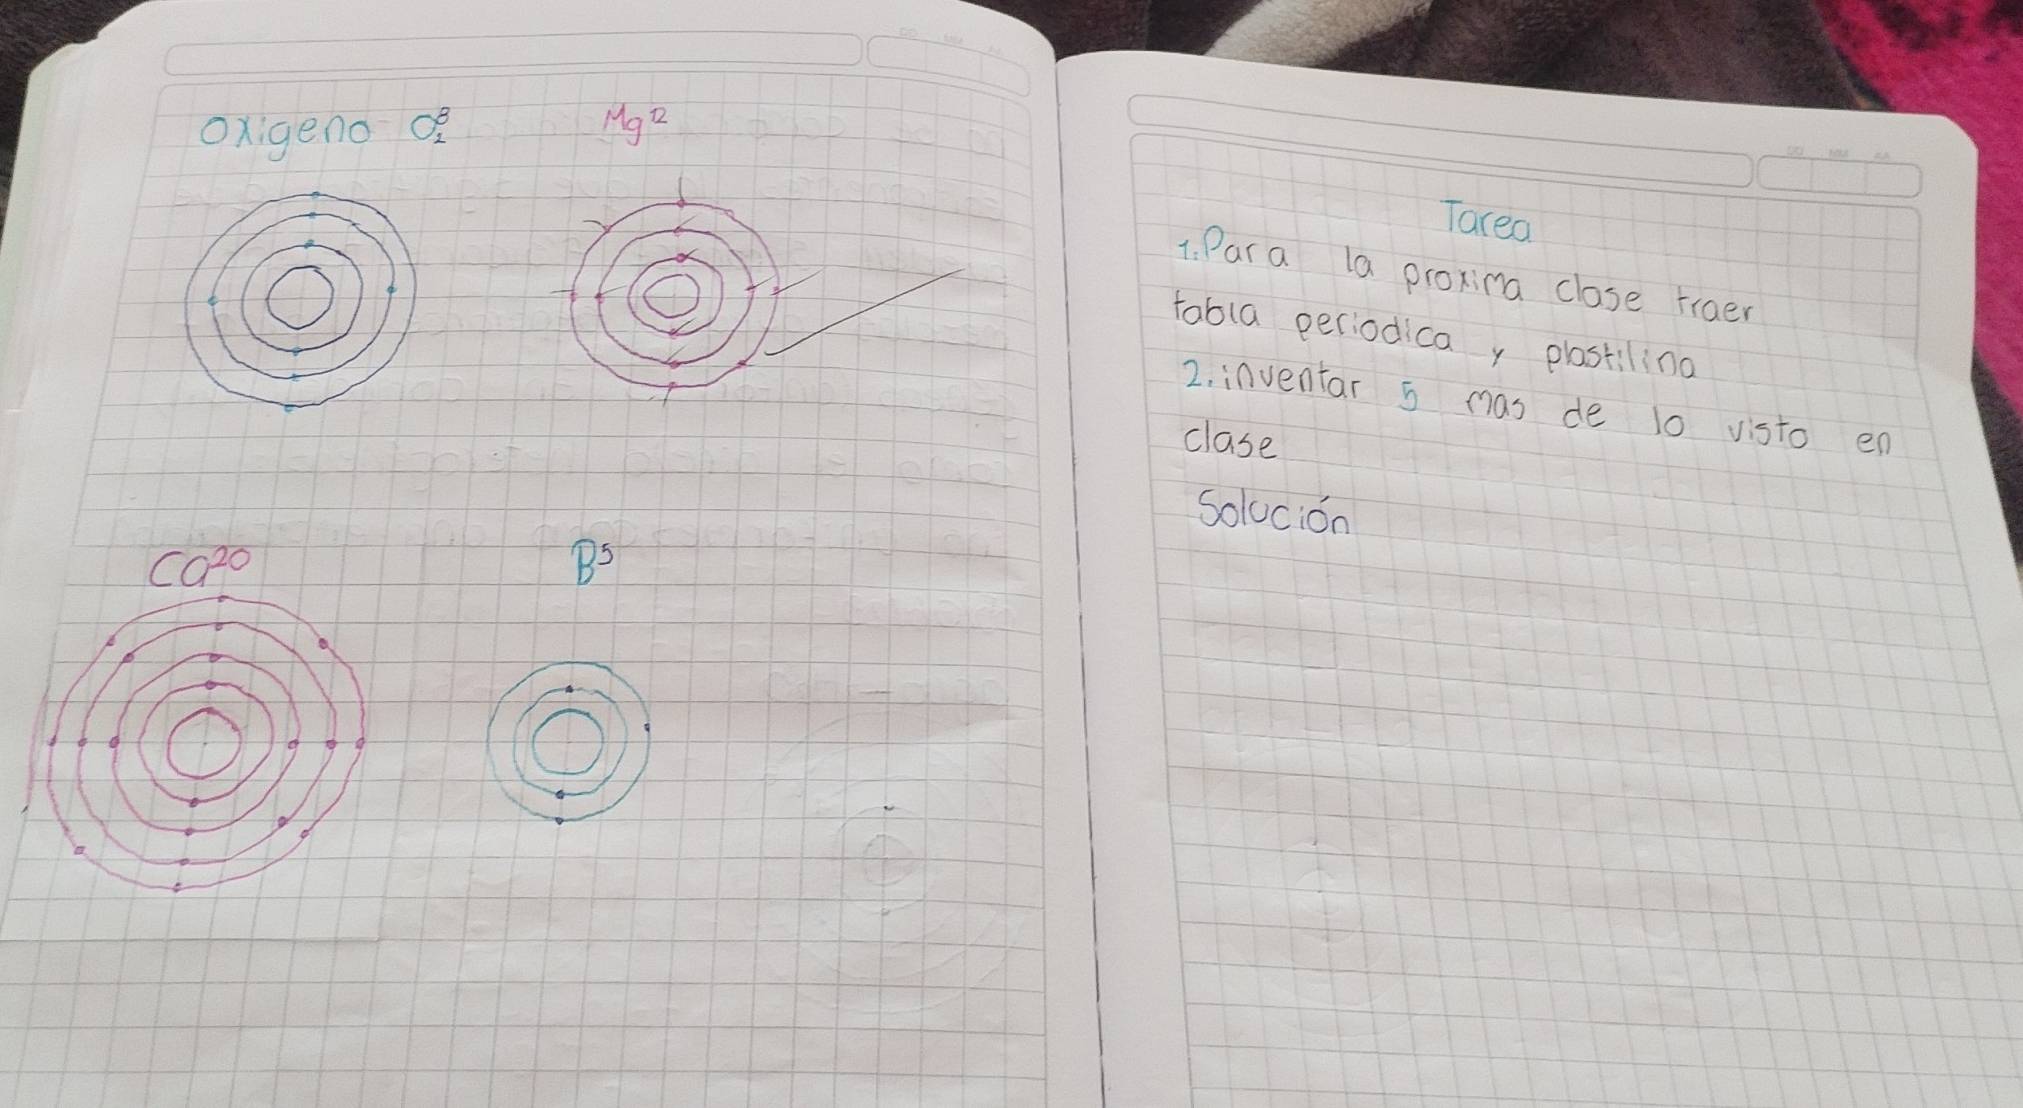 Oxigeno O₂⁸
Mg¹²
Ca²⁰
B⁵
Tarea
1. Para la proxima clase traer
tabla periodica y plastilina
2. inventar 5 mas de lo visto en
clase
Solución